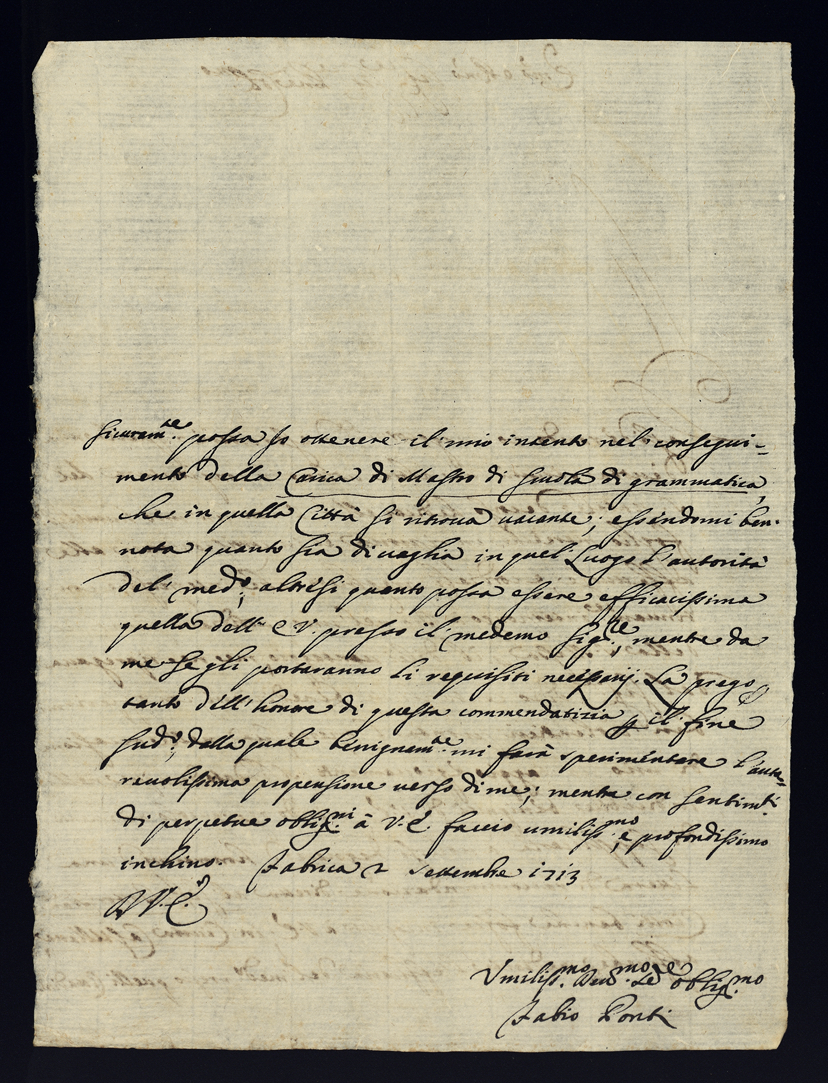 sicuram.te possa Io ottenere il mio intento nel consegui=
mento della Carica di Mastro di Scuola di grammatica,
che in quella Città si ritrova vacante; essendomi ben
nota quanto sia di veglia in quel Luogo l'autorità
del med.o; altresì quanto possa essere efficacissima
quella dell' E V. presso il medemo Sig.re, mentre da
me se gli portaranno li requisiti necessarij. La prego
tanto dell'honore di questa commendatizia p il fine
sud.o, dalla quale benignam.te mi farà sperimentare l'auto=
revolissima propensione verso di me; mentre con sentim.ti
di perpetue oblig.ni à V. E. faccio umiliss.mo, e profondissimo
inchino. Fabrica 2 Settembre 1713
D V. E.
Umiliss.mo Dev.mo Se.re oblig.mo
Fabio Ponti